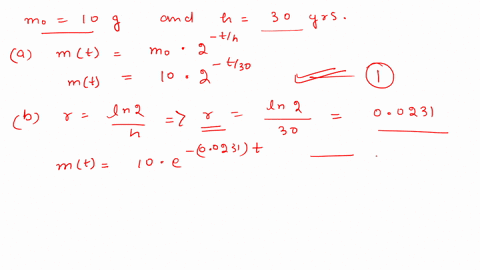 m₀ = 10 g and h = 30 yrs.
(a) m(t) = m₀ · 2^(-t/h)
m(t) = 10 · 2^(-t/30) ①
(b) r = ln2/h => r = ln2/30 = 0.0231
m(t) = 10 · e^(-(0.0231)t)